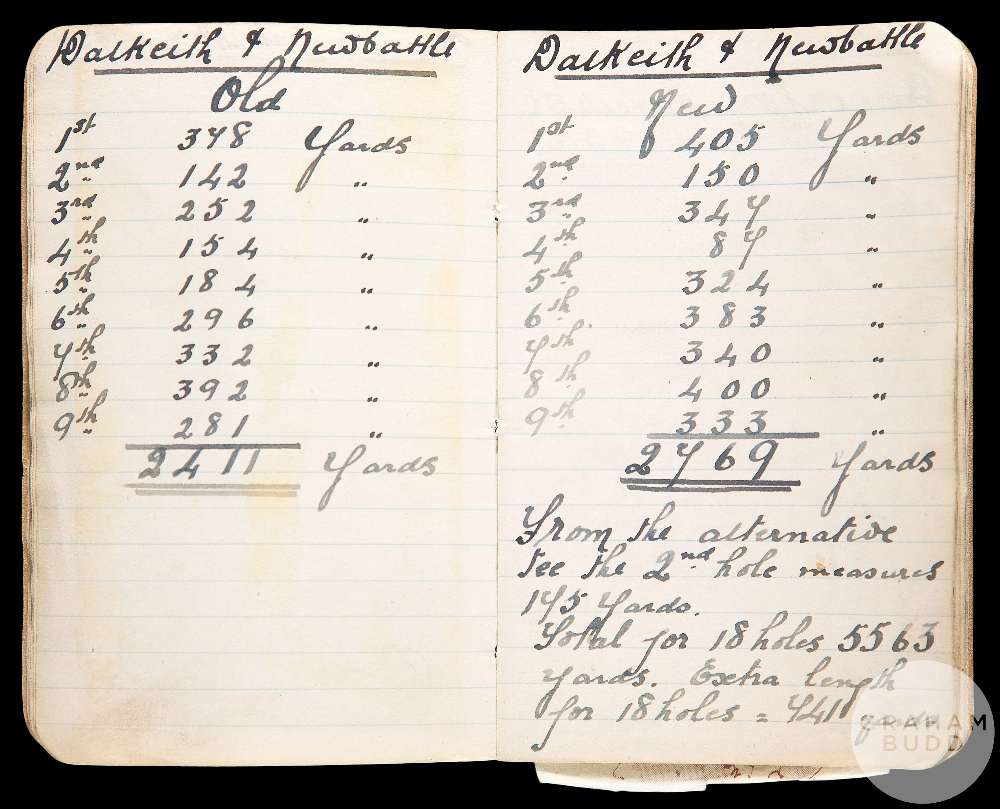 Dalkeith & Newbattle
Old
1st 378 Yards
2nd 142 "
3rd 252 "
4th 154 "
5th 184 "
6th 296 "
7th 332 "
8th 392 "
9th 281 "
2411 Yards
Dalkeith & Newbattle
New
1st 405 Yards
2nd 150 "
3rd 347 "
4th 87 "
5th 324 "
6th 383 "
7th 340 "
8th 400 "
9th 333 "
2769 Yards
From the alternative
tee the 2nd hole measures
175 Yards.
Total for 18 holes 5563
yards. Extra length
for 18 holes = 741 yards
GRAHAM
BUDD